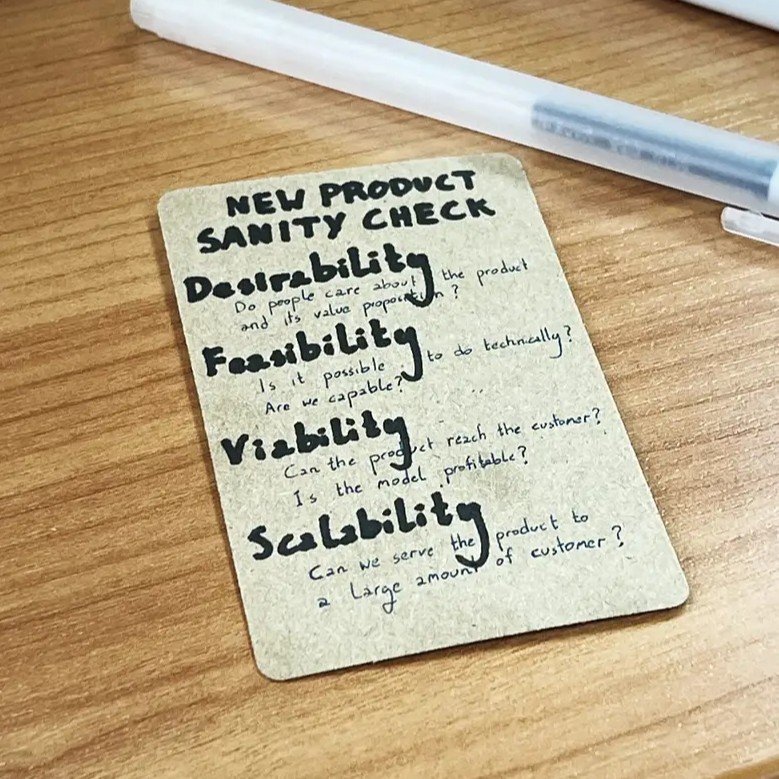 NEW PRODUCT
SANITY CHECK
Desirability
Do people care about the product
and its value proposition?
Feasibility
Is it possible to do technically?
Are we capable?
Viability
Can the product reach the customer?
Is the model profitable?
Scalability
Can we serve the product to
a large amount of customer?